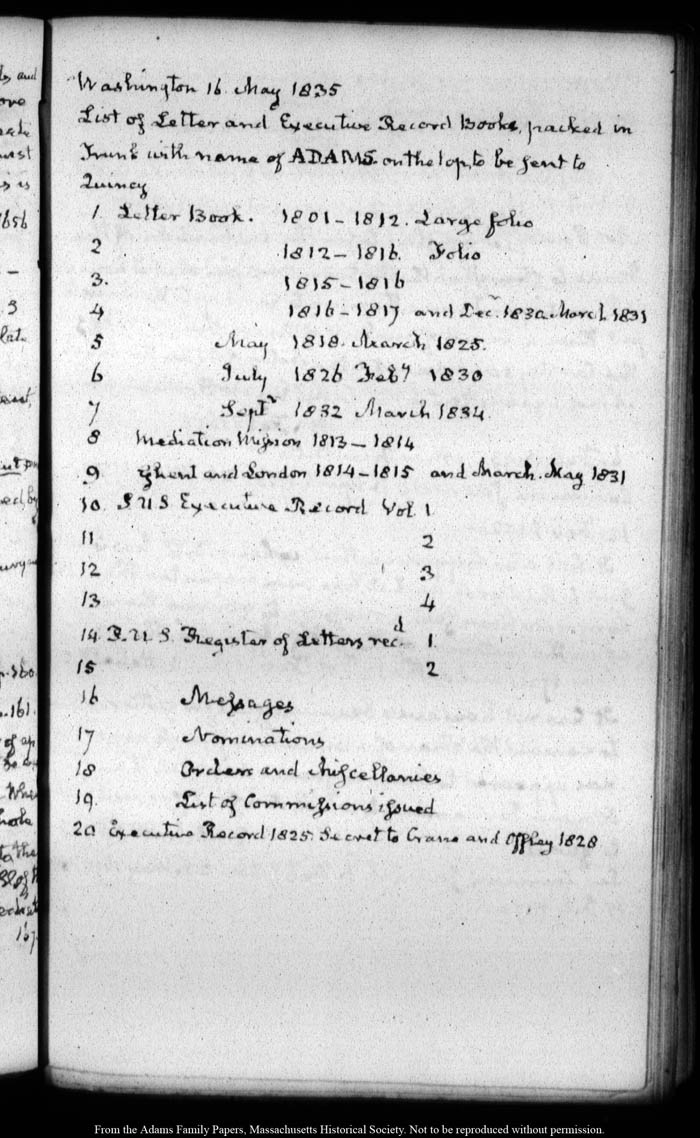 Washington 16. May 1835
List of Letter and Executive Record Books, packed in
Trunk with name of ADAMS. on the top, to be sent to
Quincy
1. Letter Book. 1801-1812. Large folio
2 1812-1816. Folio
3. 1815-1816
4 1816-1817 and Decr. 1830. March 1831
5 May 1818. March 1825.
6 July 1826 Feby 1830
7 Septr 1832 March 1834.
8 Mediation Mission 1813-1814
9. Ghent and London 1814-1815 and March. May 1831
10. P. U S Executive Record Vol. 1
11. 2
12 3
13 4
14. P. U. S. Register of Letters recd. 1.
15 2
16 Messages
17 Nominations
18 Orders and Miscellanies
19. List of Commissions issued
20 Executive Record 1825. Secret to Crane and Offley 1828
and
ove
1656
3
p. 160.
p. 161.
of
the
167.
From the Adams Family Papers, Massachusetts Historical Society. Not to be reproduced without permission.